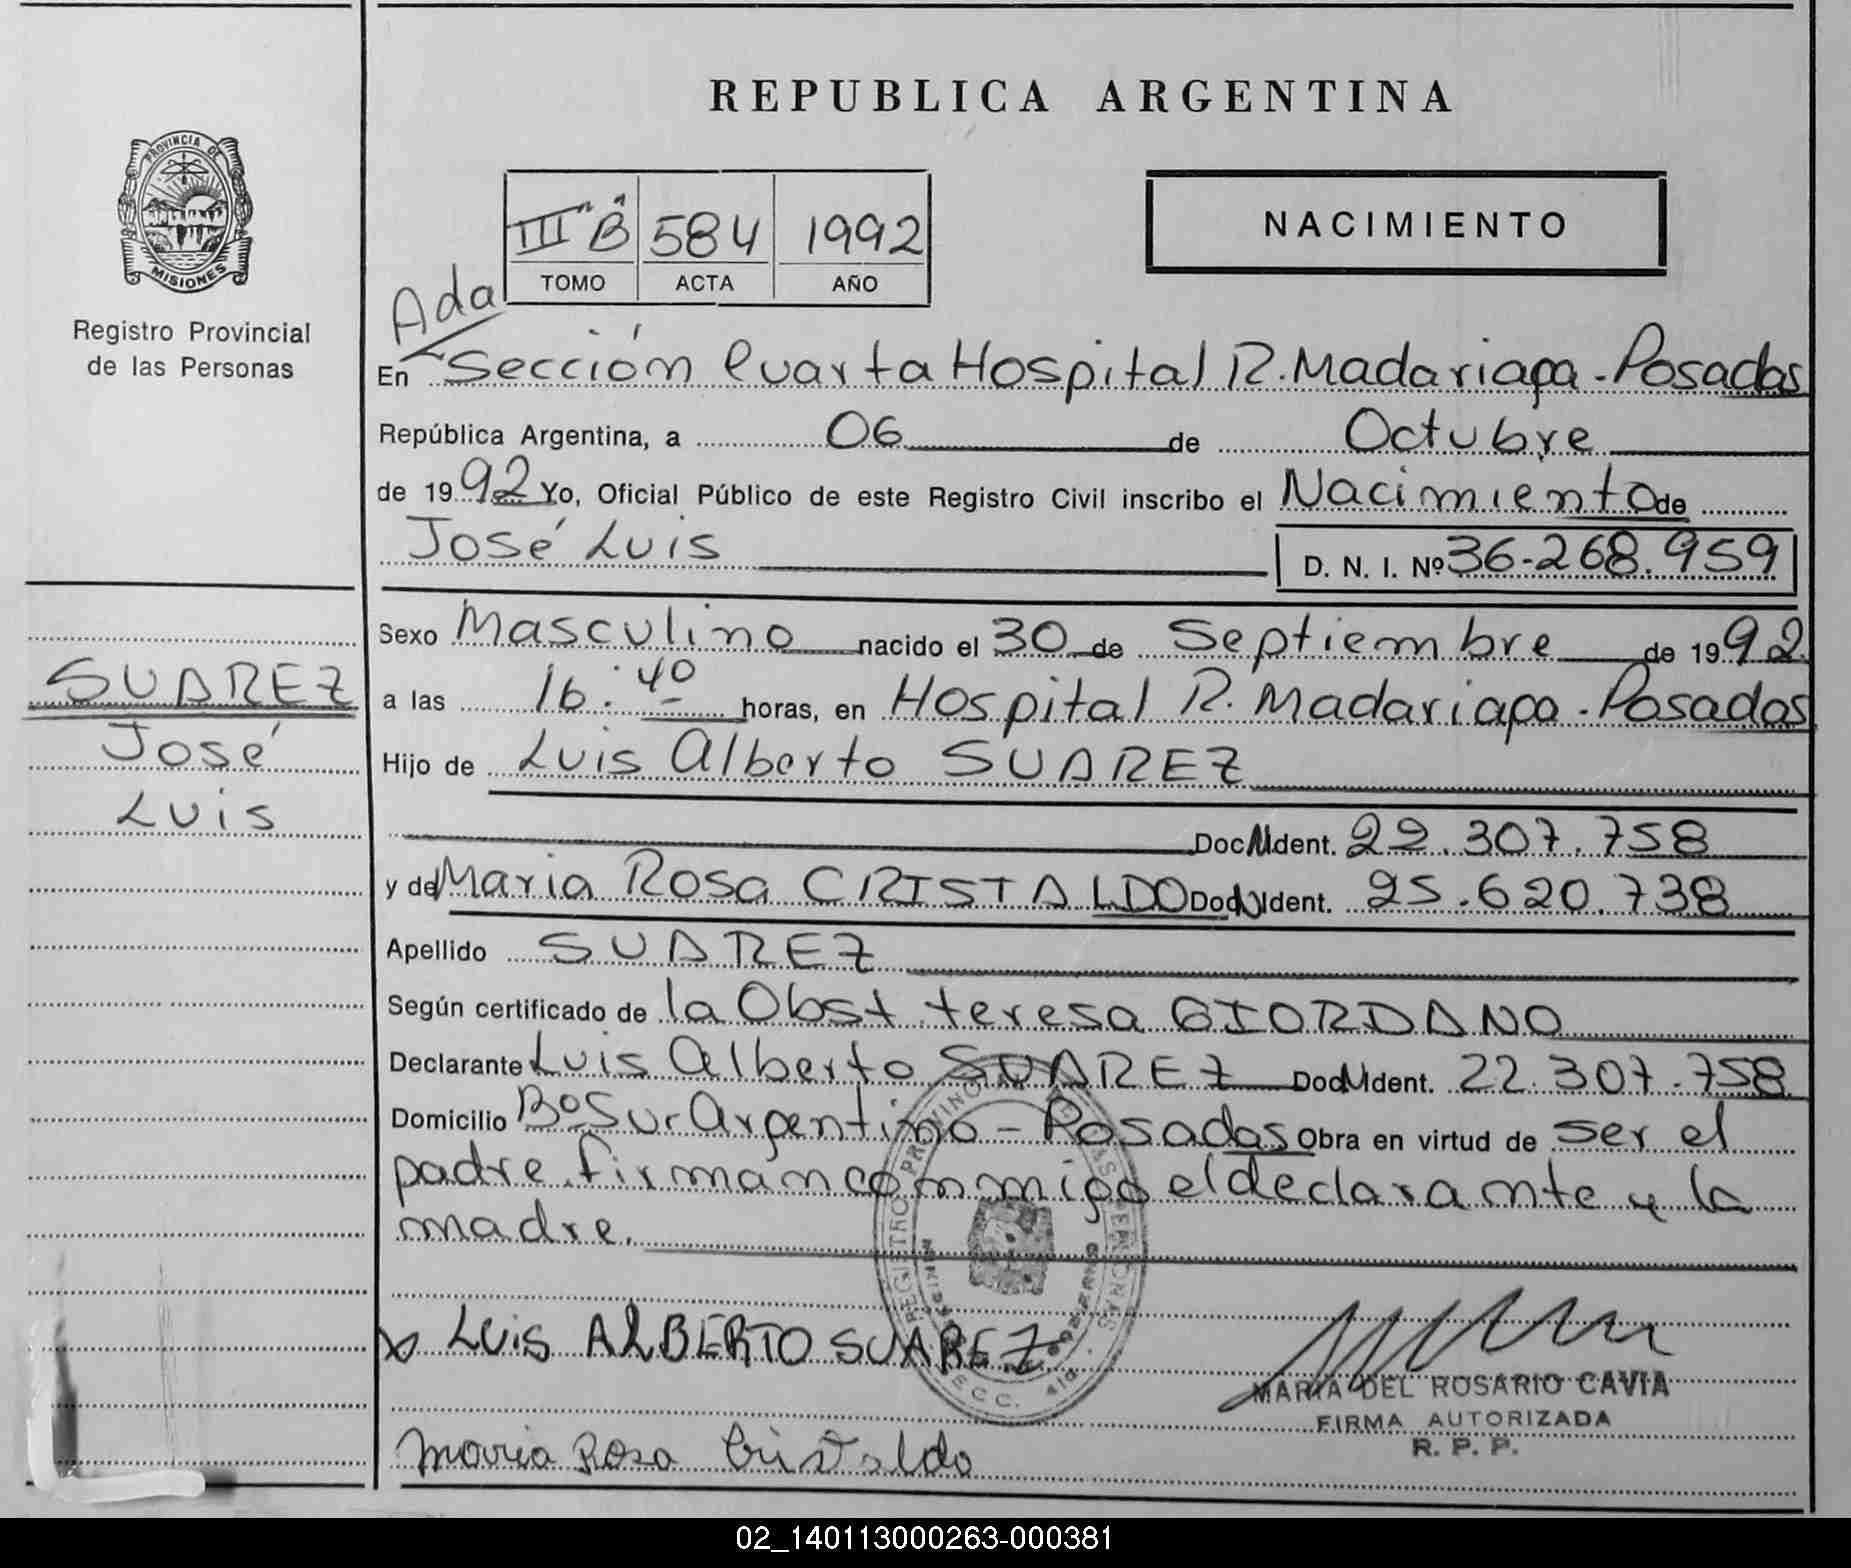 REPUBLICA ARGENTINA
PROVINCIA DE MISIONES
Registro Provincial
de las Personas
III "B" 584 1992
TOMO ACTA AÑO
NACIMIENTO
Ada
En Sección Cuarta Hospital R. Madariaga - Posadas
República Argentina, a 06 de Octubre
de 1992 Yo, Oficial Público de este Registro Civil inscribo el Nacimiento de
José Luis D. N. I. Nº 36-268.959
Sexo Masculino nacido el 30 de Septiembre de 1992
a las 16:40 horas, en Hospital R. Madariaga - Posadas
Hijo de Luis Alberto SUAREZ
Doc. Ident. 22.307.758
y de Maria Rosa CRISTALDO Doc. Ident. 25.620.738
Apellido SUAREZ
Según certificado de la Obst teresa GIORDANO
Declarante Luis Alberto SUAREZ Doc. Ident. 22.307.758
Domicilio Bº Sur Argentino - Posadas Obra en virtud de ser el
padre. firman conmigo el declarante y la
madre.
SUAREZ
José
Luis
LUIS ALBERTO SUAREZ
Maria Rosa Cristaldo
MARIA DEL ROSARIO CAVIA
FIRMA AUTORIZADA
R. P. P.
02_140113000263-000381